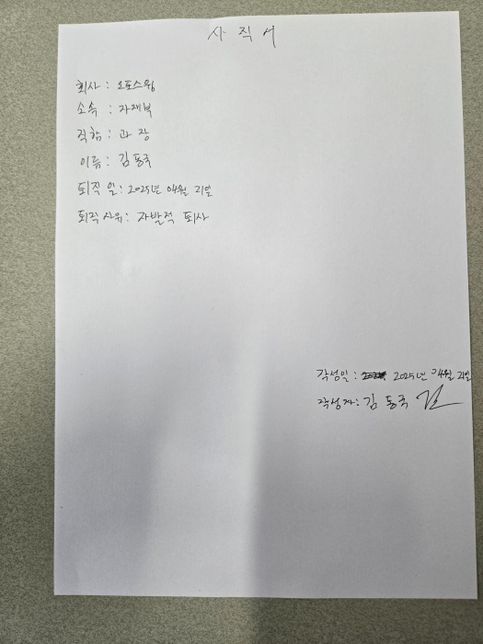 사 직 서
회사 : 오포스윙
소속 : 자재부
직함 : 과 장
이름 : 김 동국
퇴직 일 : 2025년 04월 21일
퇴직 사유 : 자발적 퇴사
작성일 : 2025년 04월 21일
작성자 : 김 동 국